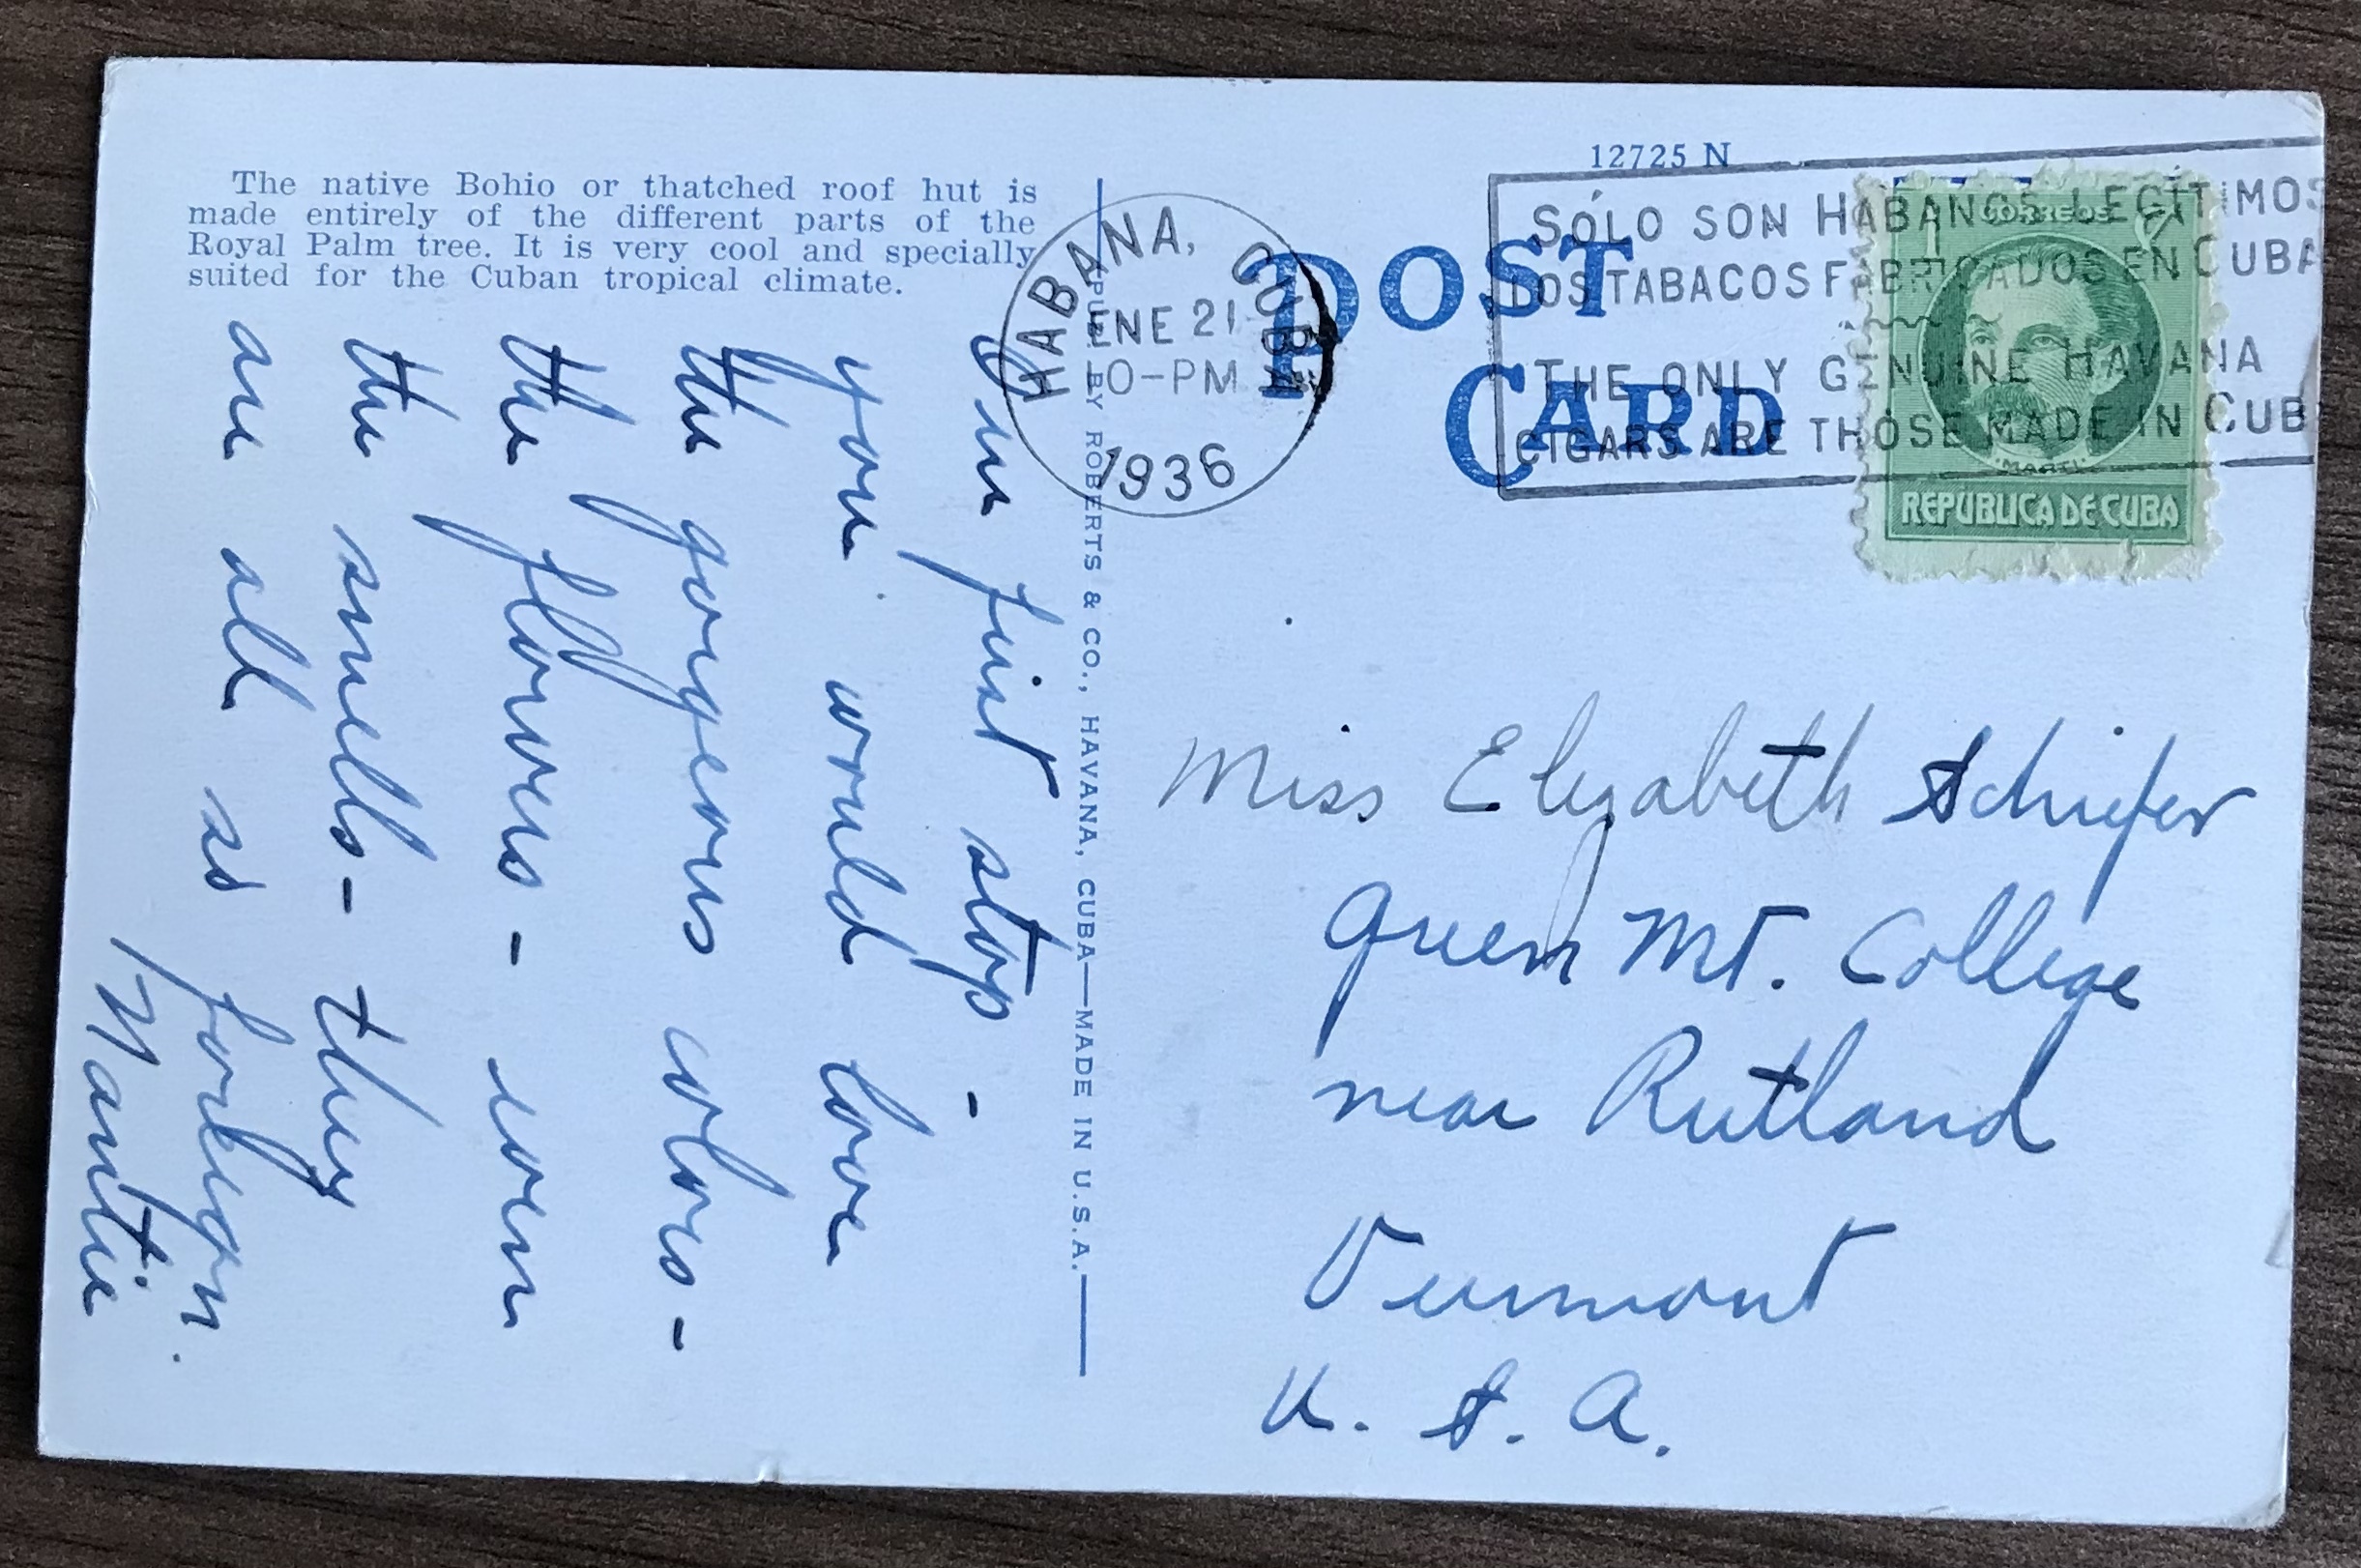 The native Bohio or thatched roof hut is
made entirely of the different parts of the
Royal Palm tree. It is very cool and specially
suited for the Cuban tropical climate.
Our first stop -
you would love
the gorgeous colors -
the flowers - even
the smells - they
are all so foreign.
Mantie
PUB. BY ROBERTS & CO., HAVANA, CUBA—MADE IN U.S.A.
HABANA, CUBA
ENE 21
10-PM
1936
12725 N
POST
CARD
SÓLO SON HABANOS LEGÍTIMOS
LOS TABACOS FABRICADOS EN CUBA
THE ONLY GENUINE HAVANA
CIGARS ARE THOSE MADE IN CUB
CORREOS
1
MARTI
REPUBLICA DE CUBA
Miss Elizabeth Schiefer
Green Mt. College
near Rutland
Vermont
U. S. A.